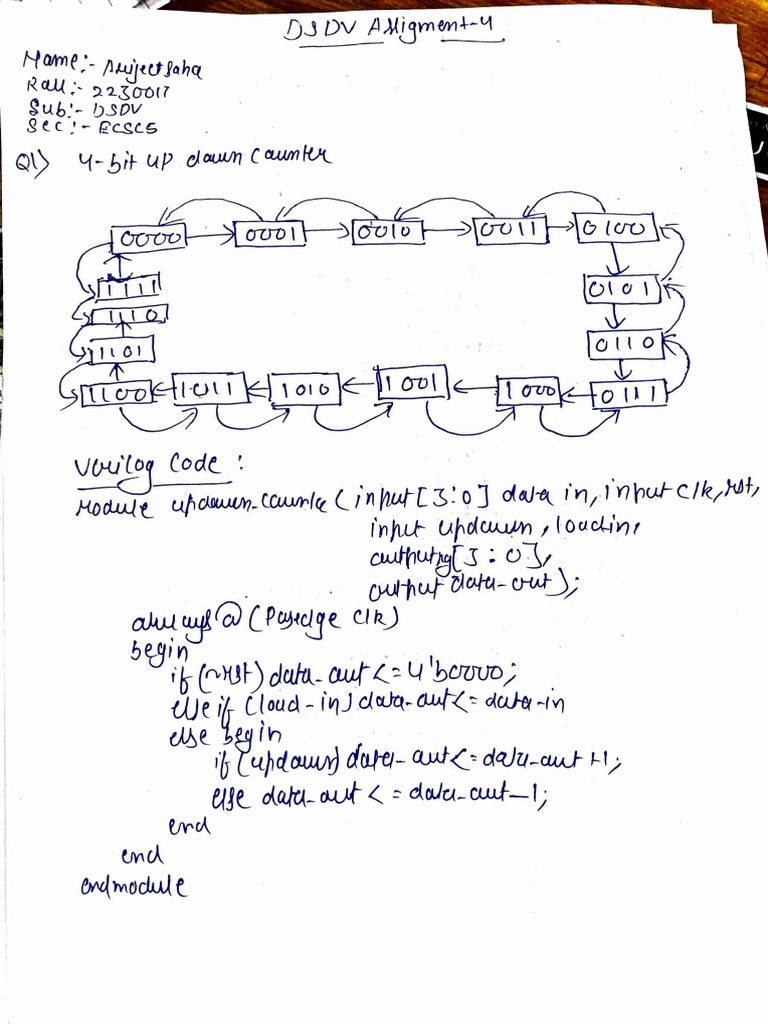 DSDV Assigment-4
Name:- Avijeet Saha
Roll:- 2230017
Sub:- DSDV
Sec:- ECSC5
Q1) 4-bit up down counter
0000 0001 0010 0011 0100
1111 0101
1110
1101 0110
1100 1011 1010 1001 1000 0111
Verilog Code :
Module updown_counter (input [3:0] data in, input clk, rst,
input updown, load in,
output reg [3:0],
output data_out);
always @ (Posedge clk)
begin
if (~rst) data_out <= 4'b0000;
else if (load-in) data_out <= data_in
else begin
if (updown) data_out <= data_out +1;
else data_out <= data_out -1;
end
end
endmodule